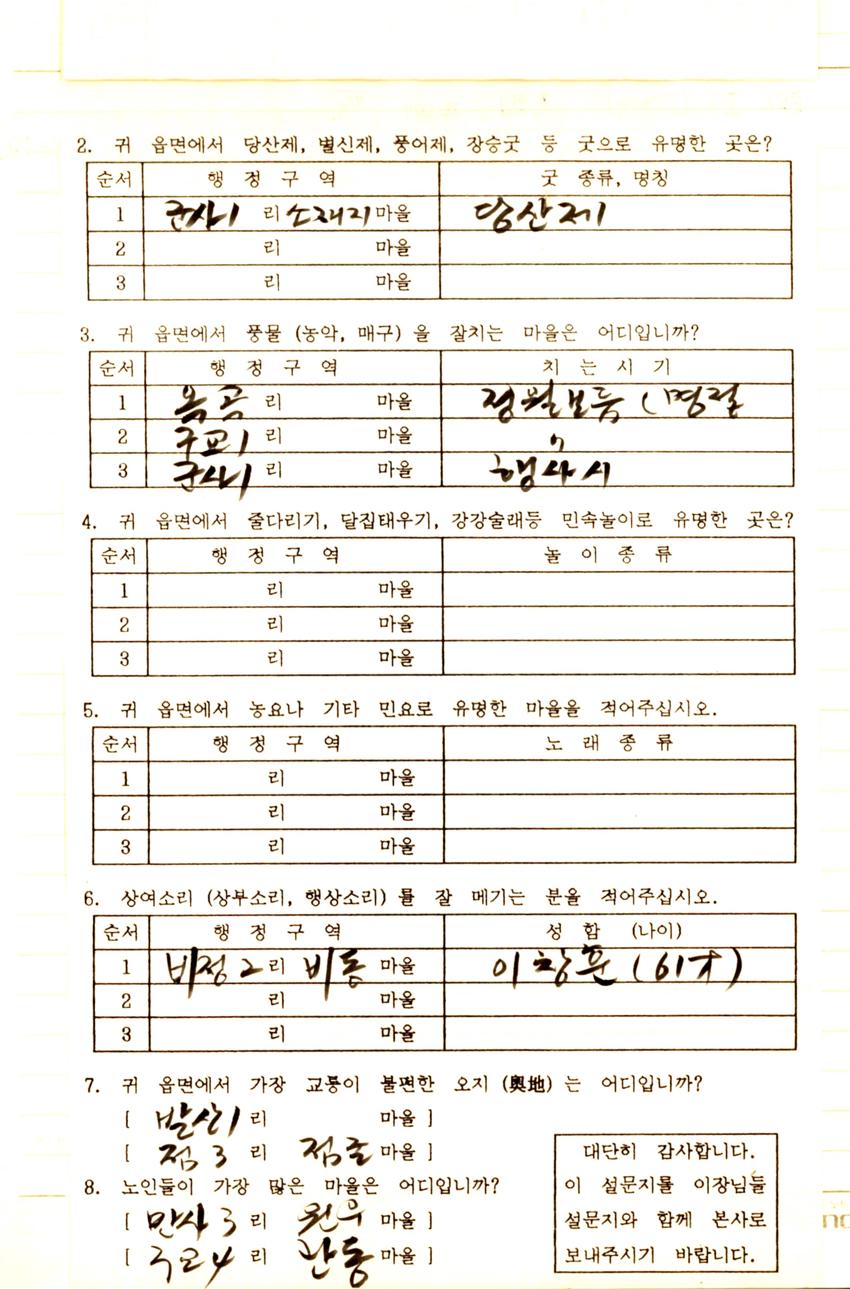 2. 귀 읍면에서 당산제, 별신제, 풍어제, 장승굿 등 굿으로 유명한 곳은?
순서 행 정 구 역 굿 종류, 명칭
1 군사1 리 소재지 마을 당산제
2 리 마을
3 리 마을
3. 귀 읍면에서 풍물 (농악, 매구) 을 잘치는 마을은 어디입니까?
순서 행 정 구 역 치 는 시 기
1 옥곡 리 마을 정월보름 (명절
2 국교1 리 마을 〃
3 군사1 리 마을 행사시
4. 귀 읍면에서 줄다리기, 달집태우기, 강강술래등 민속놀이로 유명한 곳은?
순서 행 정 구 역 놀 이 종 류
1 리 마을
2 리 마을
3 리 마을
5. 귀 읍면에서 농요나 기타 민요로 유명한 마을을 적어주십시오.
순서 행 정 구 역 노 래 종 류
1 리 마을
2 리 마을
3 리 마을
6. 상여소리 (상부소리, 행상소리) 를 잘 메기는 분을 적어주십시오.
순서 행 정 구 역 성 함 (나이)
1 비정2 리 비동 마을 이창훈 (61才)
2 리 마을
3 리 마을
7. 귀 읍면에서 가장 교통이 불편한 오지 (奧地) 는 어디입니까?
[ 발산1 리 마을 ]
[ 점3 리 점골 마을 ]
8. 노인들이 가장 많은 마을은 어디입니까?
[ 만사3 리 원우 마을 ]
[ 4 리 관동 마을 ]
대단히 감사합니다.
이 설문지를 이장님들
설문지와 함께 본사로
보내주시기 바랍니다.